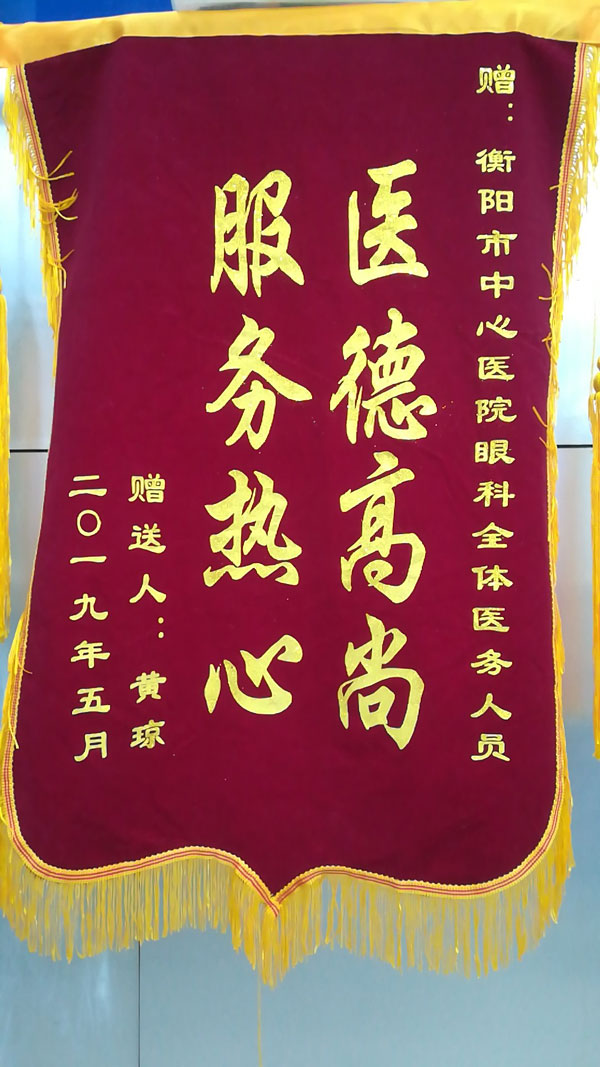 赠：衡阳市中心医院眼科全体医务人员
医德高尚
服务热心
赠送人：黄琼
二〇一九年五月